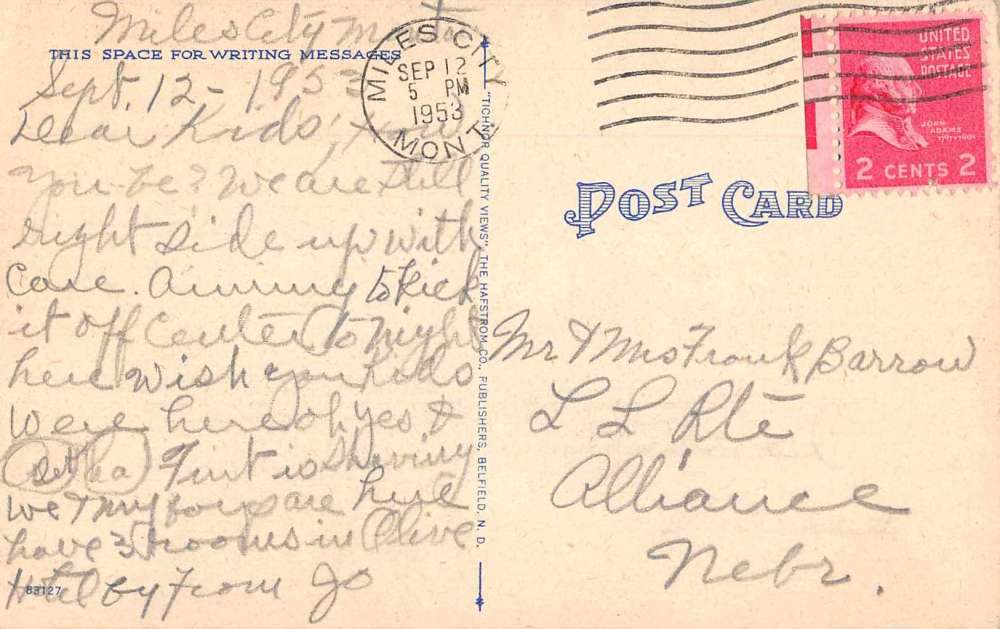 Miles City Mont
THIS SPACE FOR WRITING MESSAGES
Sept. 12 - 1953
Dear Kids, How
you be? We are still
right side up with
care. Aiming to kick
it off center tonight
here wish you kids
were here oh yes &
is shaving
we & my are here
have 3 rooms in Olive
Hotel by from Jo
83127
MILES CITY
SEP 12
5 PM
1953
MONT
"TICHNOR QUALITY VIEWS" THE HAFSTROM CO., PUBLISHERS, BELFIELD, N. D.
UNITED
STATES
POSTAGE
JOHN
ADAMS
1797-1801
2 CENTS 2
POST CARD
Mr & Mrs Frank Barrow
L L Rte
Alliance
Nebr.